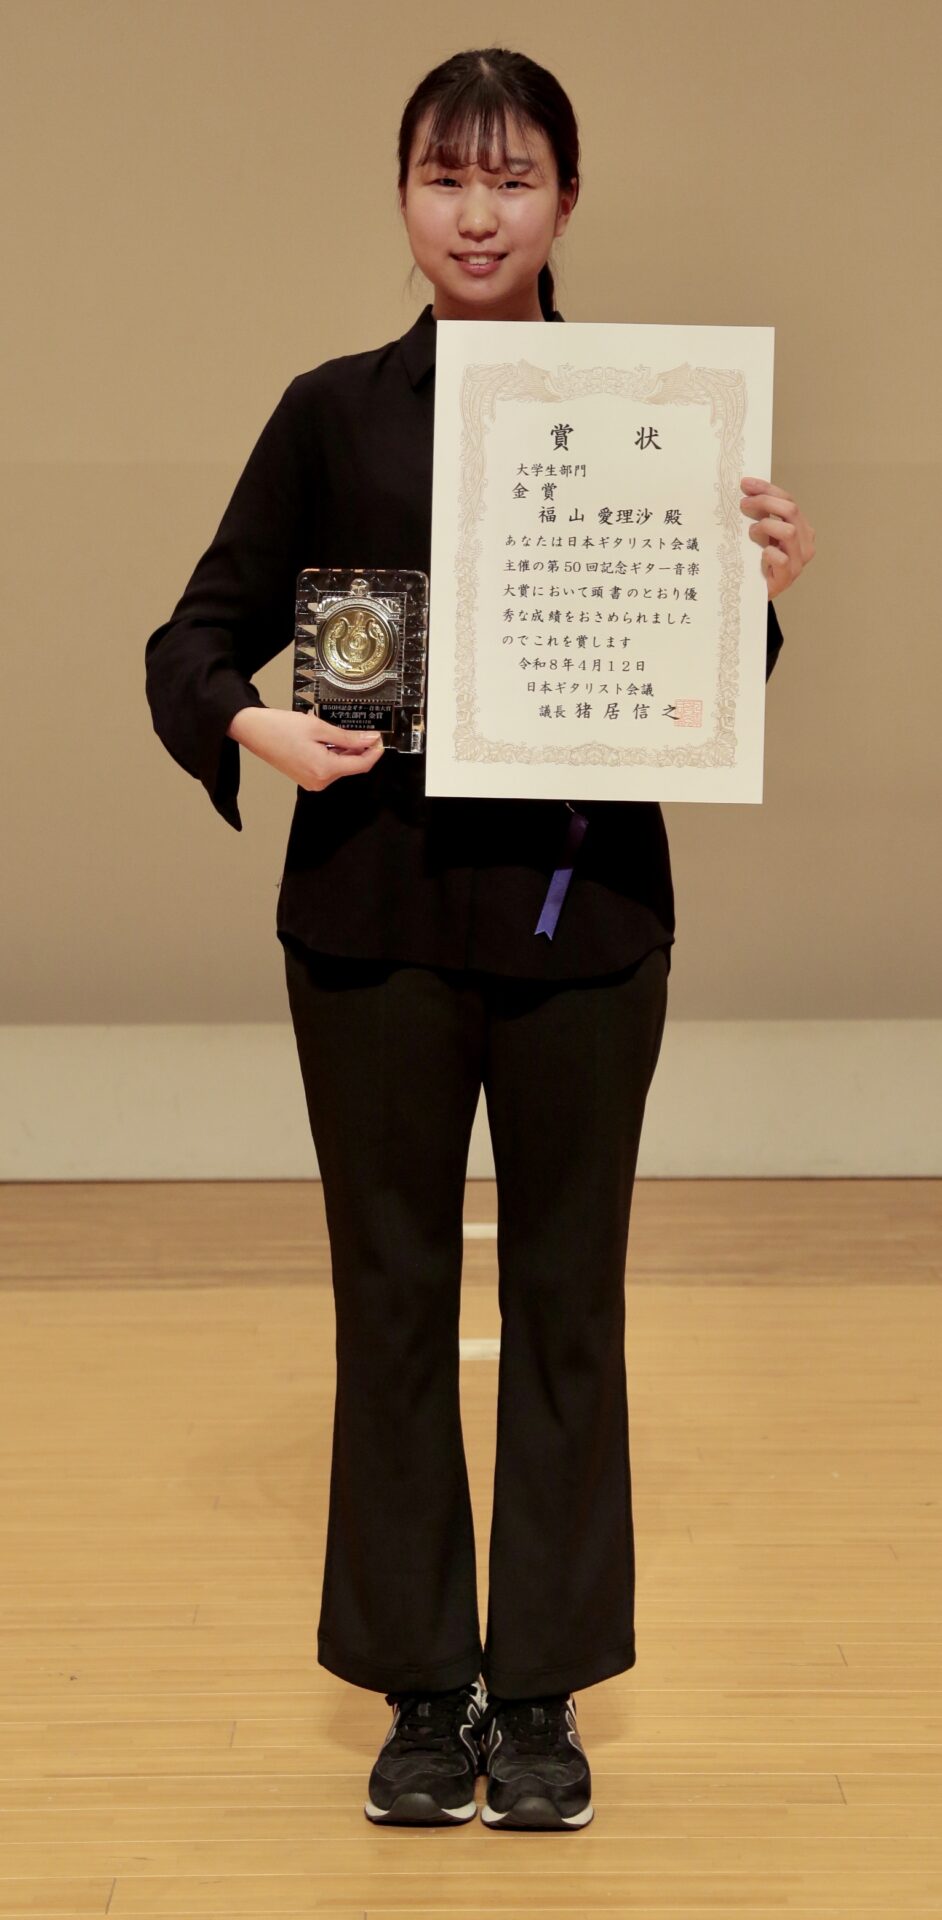 賞状
大学生部門
金賞
福山愛理沙殿
あなたは日本ギタリスト会議
主催の第50回記念ギター音楽
大賞において頭書のとおり優
秀な成績をおさめられました
のでこれを賞します
令和8年4月12日
日本ギタリスト会議
議長 猪居信之
第50回記念ギター音楽大賞
大学生部門 金賞
2026年4月12日
日本ギタリスト会議